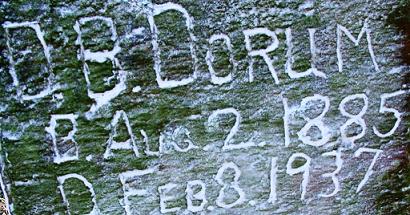 D.B. DORUM
B. AUG. 2. 1885
D. FEB 8. 1937